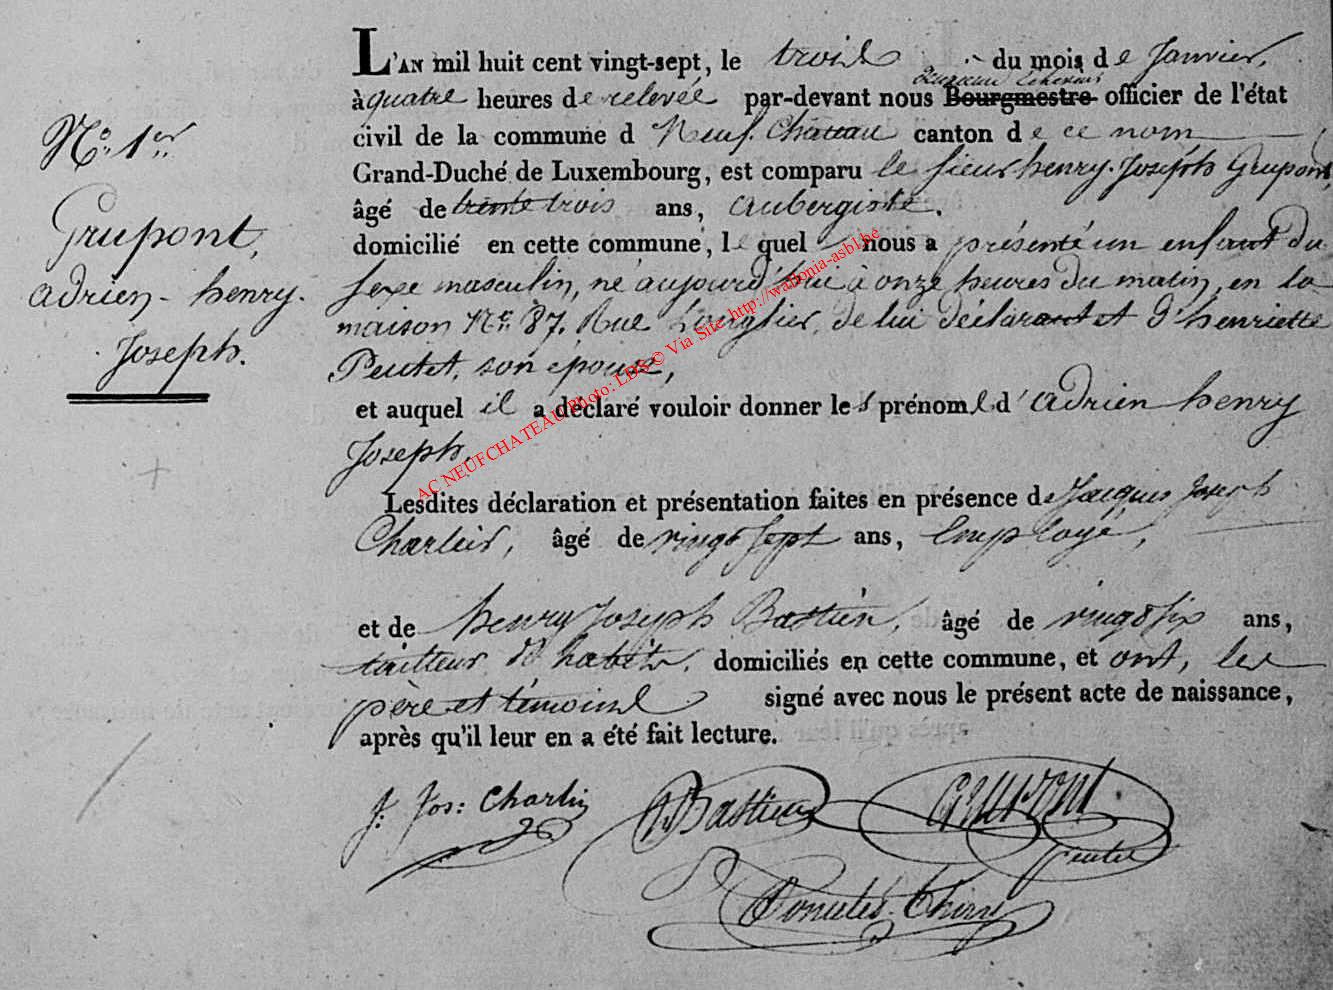 L'AN mil huit cent vingt-sept, le trois du mois de Janvier,
à quatre heures de relevée par-devant nous Bourgmestre officier de l'état
civil de la commune d Neuf-Château canton de ce nom
Grand-Duché de Luxembourg, est comparu le sieur henry-Joséph Grupont,
âgé de trente trois ans, aubergiste.
domicilié en cette commune, le quel nous a présenté un enfant du
sexe masculin, né aujourd'hui à onze heures du matin, en la
maison N° 87, Rue Longlier, de lui déclarant et d'henriette
Peutet, son épouse,
et auquel il a déclaré vouloir donner les prénoms d'adrien henry
Joseph.
Lesdites déclaration et présentation faites en présence de Jacques Joseph
Charlier, âgé de vingt sept ans, employé,
et de henry Joseph Bastien, âgé de vingt six ans,
tailleur d'habits, domiciliés en cette commune, et ont, les
père et témoins signé avec nous le présent acte de naissance,
après qu'il leur en a été fait lecture.
N° 1er
Grupont,
adrien-henry-
Joseph.
J. Jos: Charlier
Bastien
Grupont
Thiry
AC NEUFCHATEAU Photo: LDS © Via Site http://wallonia-asbl.be